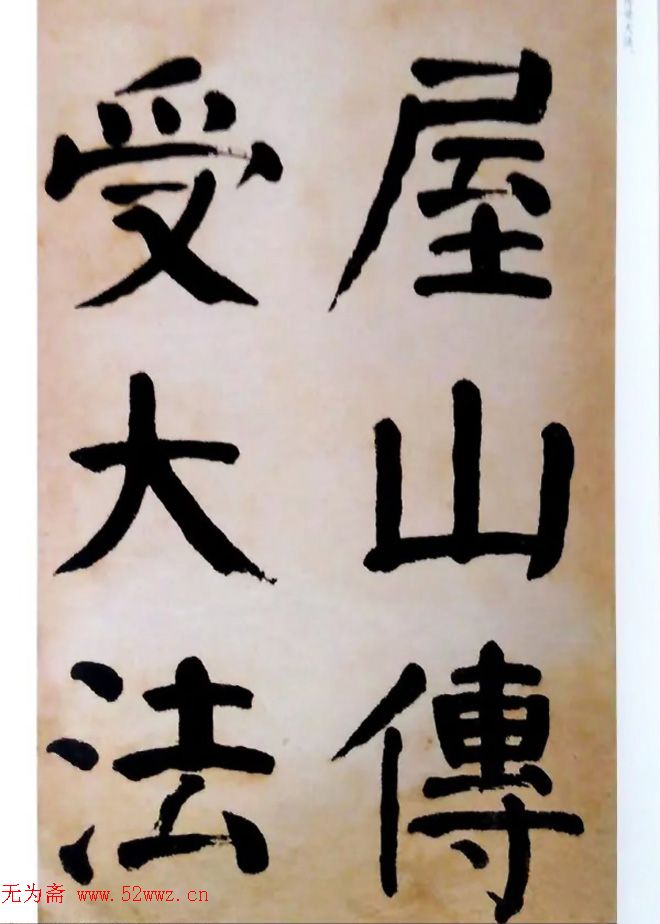 屋山傳
受大法
无为斋 www.52wwz.cn